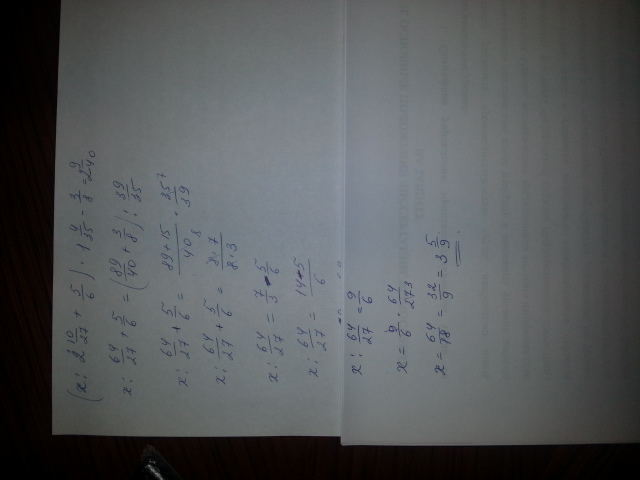 (x : 2 10/27 + 5/6) · 1 4/35 - 3/8 = 2 9/40
x : 64/27 + 5/6 = (89/40 + 3/8) : 39/35
x : 64/27 + 5/6 = 89+15/40 8 · 35 7/39
x : 64/27 + 5/6 = 8·7/8·3
x : 64/27 = 7/3 - 5/6
x : 64/27 = 14-5/6
x : 64/27 = 9/6
x = 9/6 · 64/27 3
x = 64/18 = 32/9 = 3 5/9